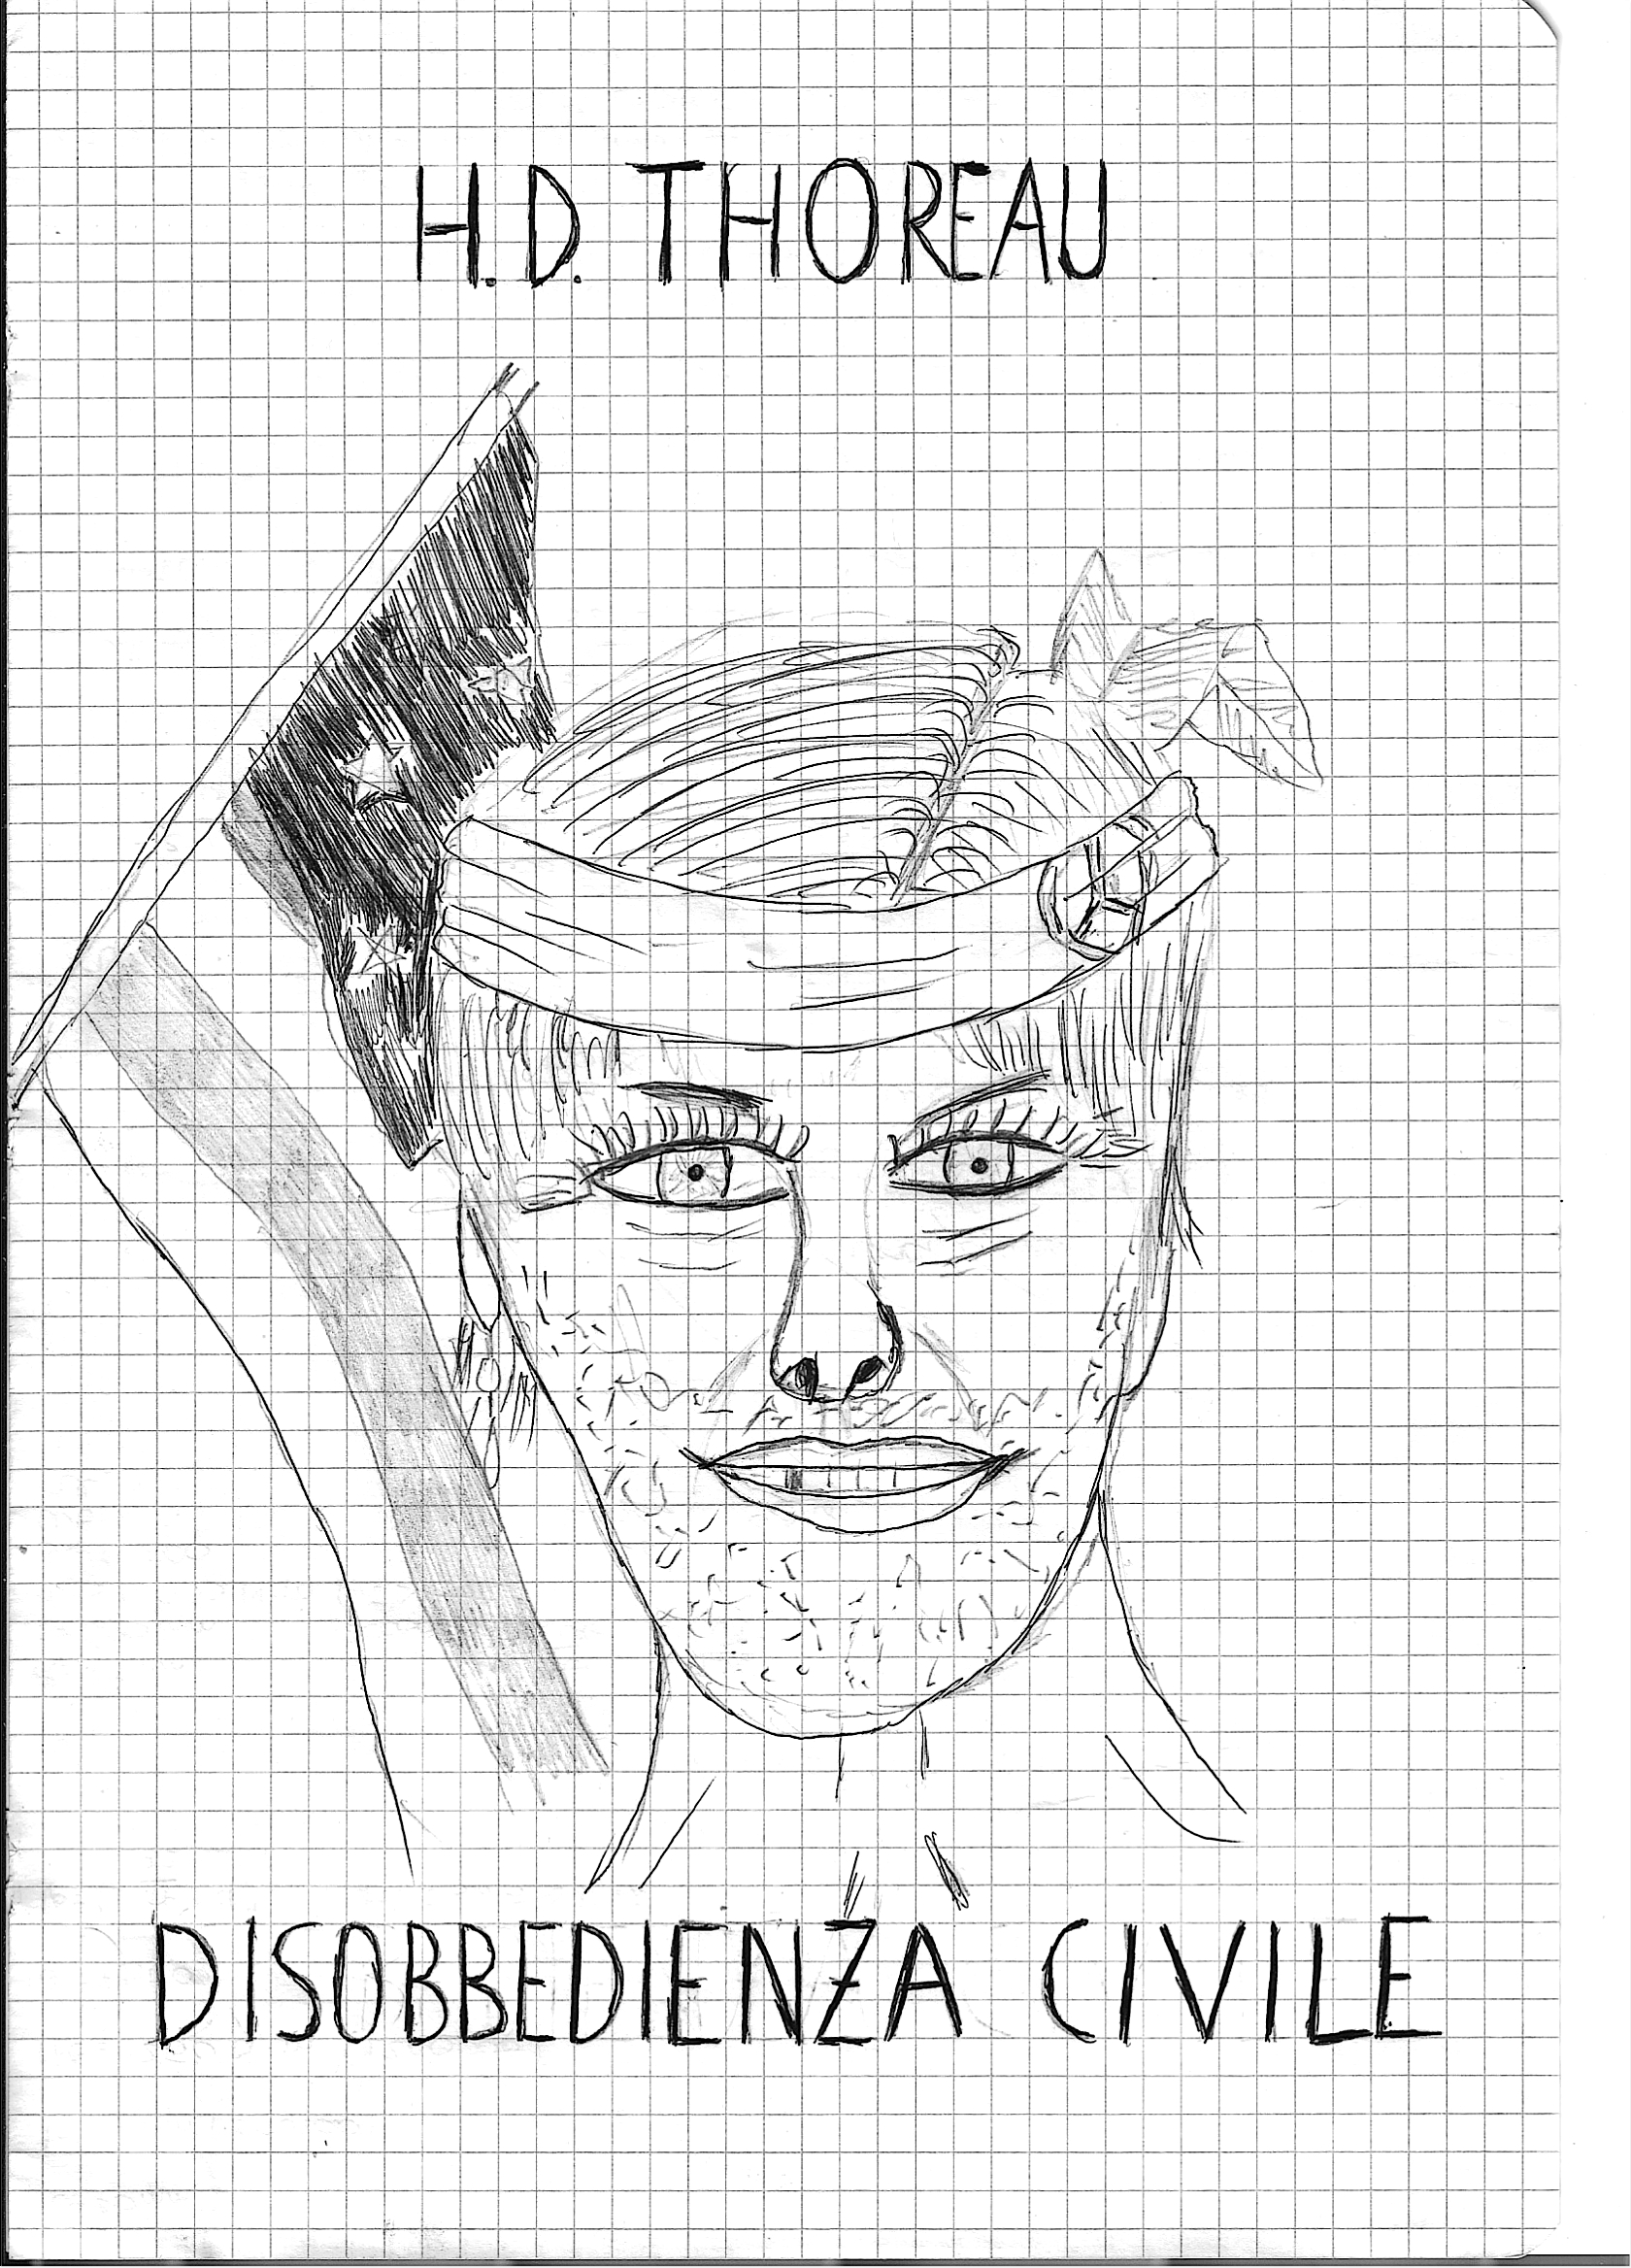 H.D. THOREAU
DISOBBEDIENZA CIVILE